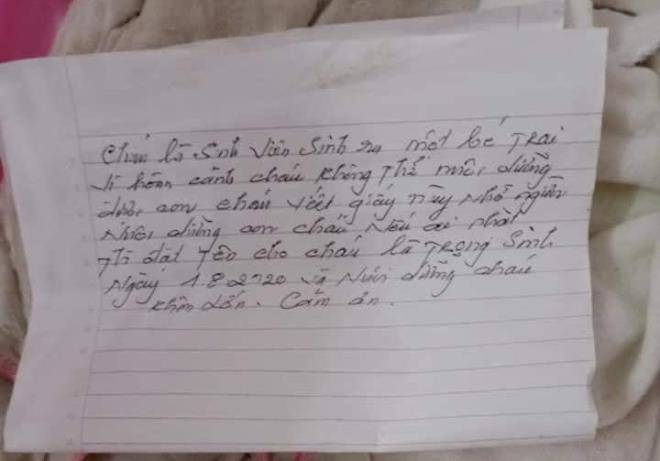 Cháu là Sinh Viên Sinh ra một bé Trai
Vì hoàn cảnh cháu không Thể nuôi dưỡng
được con cháu viết giấy này Nhờ người
Nuôi dưỡng con cháu Nếu ai nhặt
Thì đặt Tên cho cháu là Trọng Sinh
Ngày 1.8.2020 và Nuôi dưỡng cháu
khôn lớn. Cảm ơn.